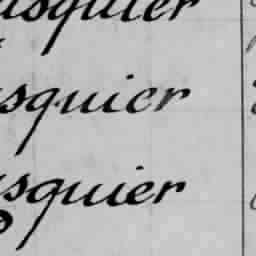 asquier
squier
squier